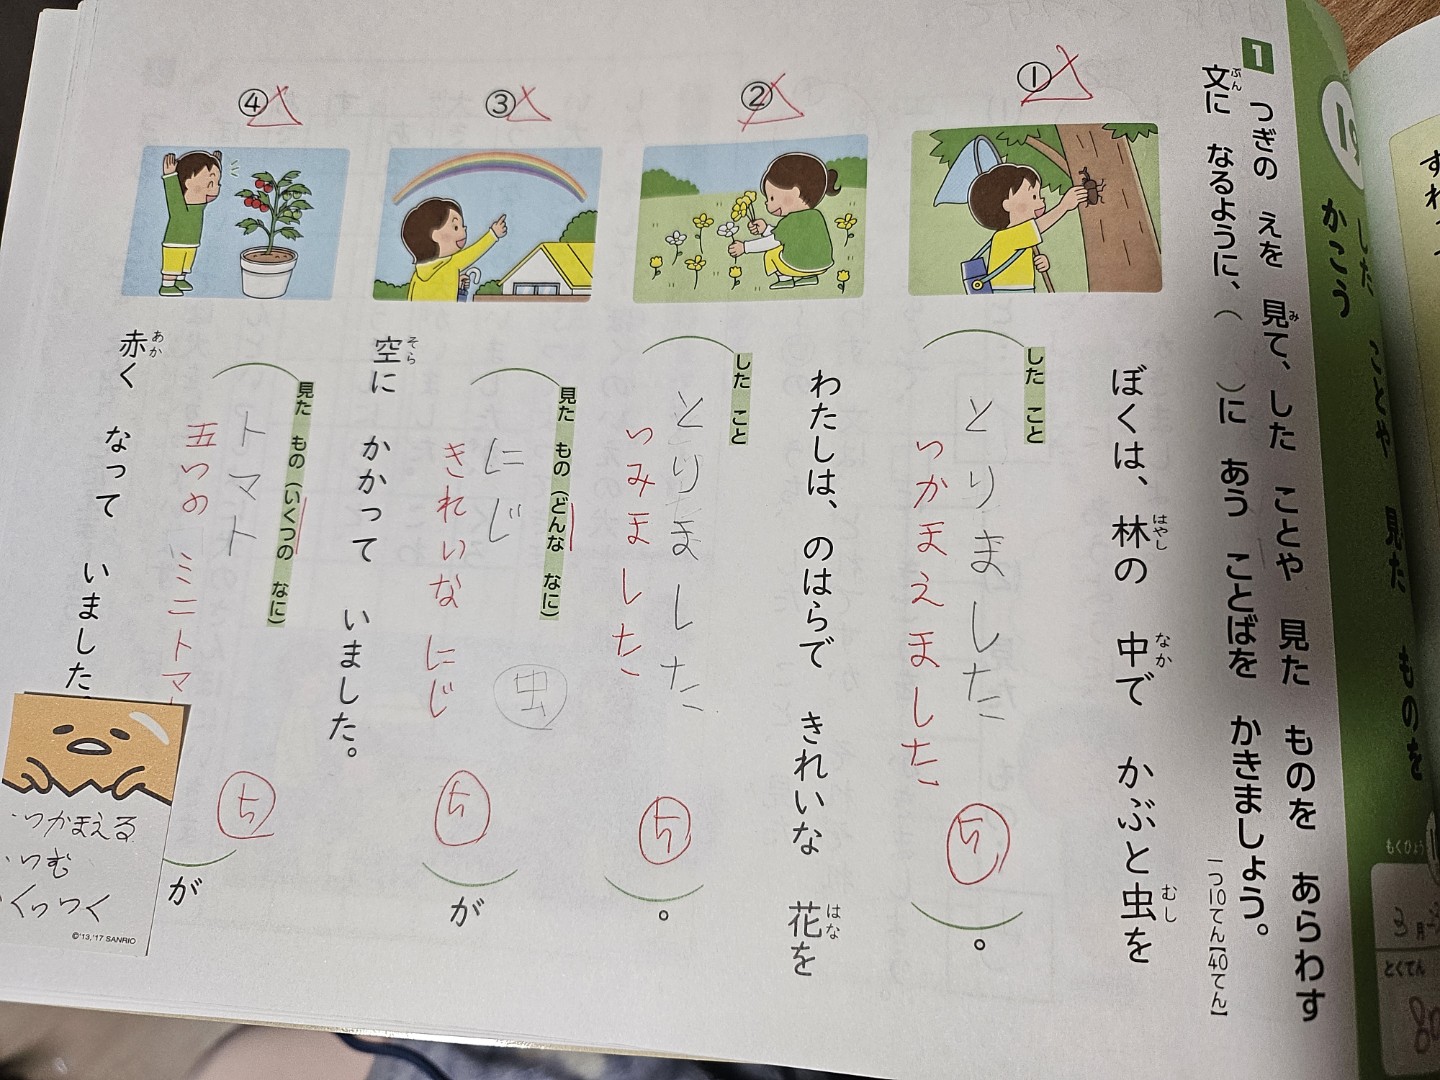 19
した ことや 見た ものを
かこう
1 つぎの えを 見て、した ことや 見た ものを あらわす
文に なるように、( )に あう ことばを かきましょう。
一つ10てん【40てん】
①
ぼくは、林の 中で かぶと虫を
した こと
とりました
つかまえました
5
。
②
わたしは、のはらで きれいな 花を
した こと
とりました
つみました
5
。
③
見た もの(どんな なに)
にじ
虫
きれいな にじ
5
が
空に かかって いました。
④
見た もの(いくつの なに)
トマト
五つの ミニトマ
5
が
赤く なって いました
・つかまえる
・つむ
くっつく
©'13,'17 SANRIO
もくひょう
3月
とくてん
80